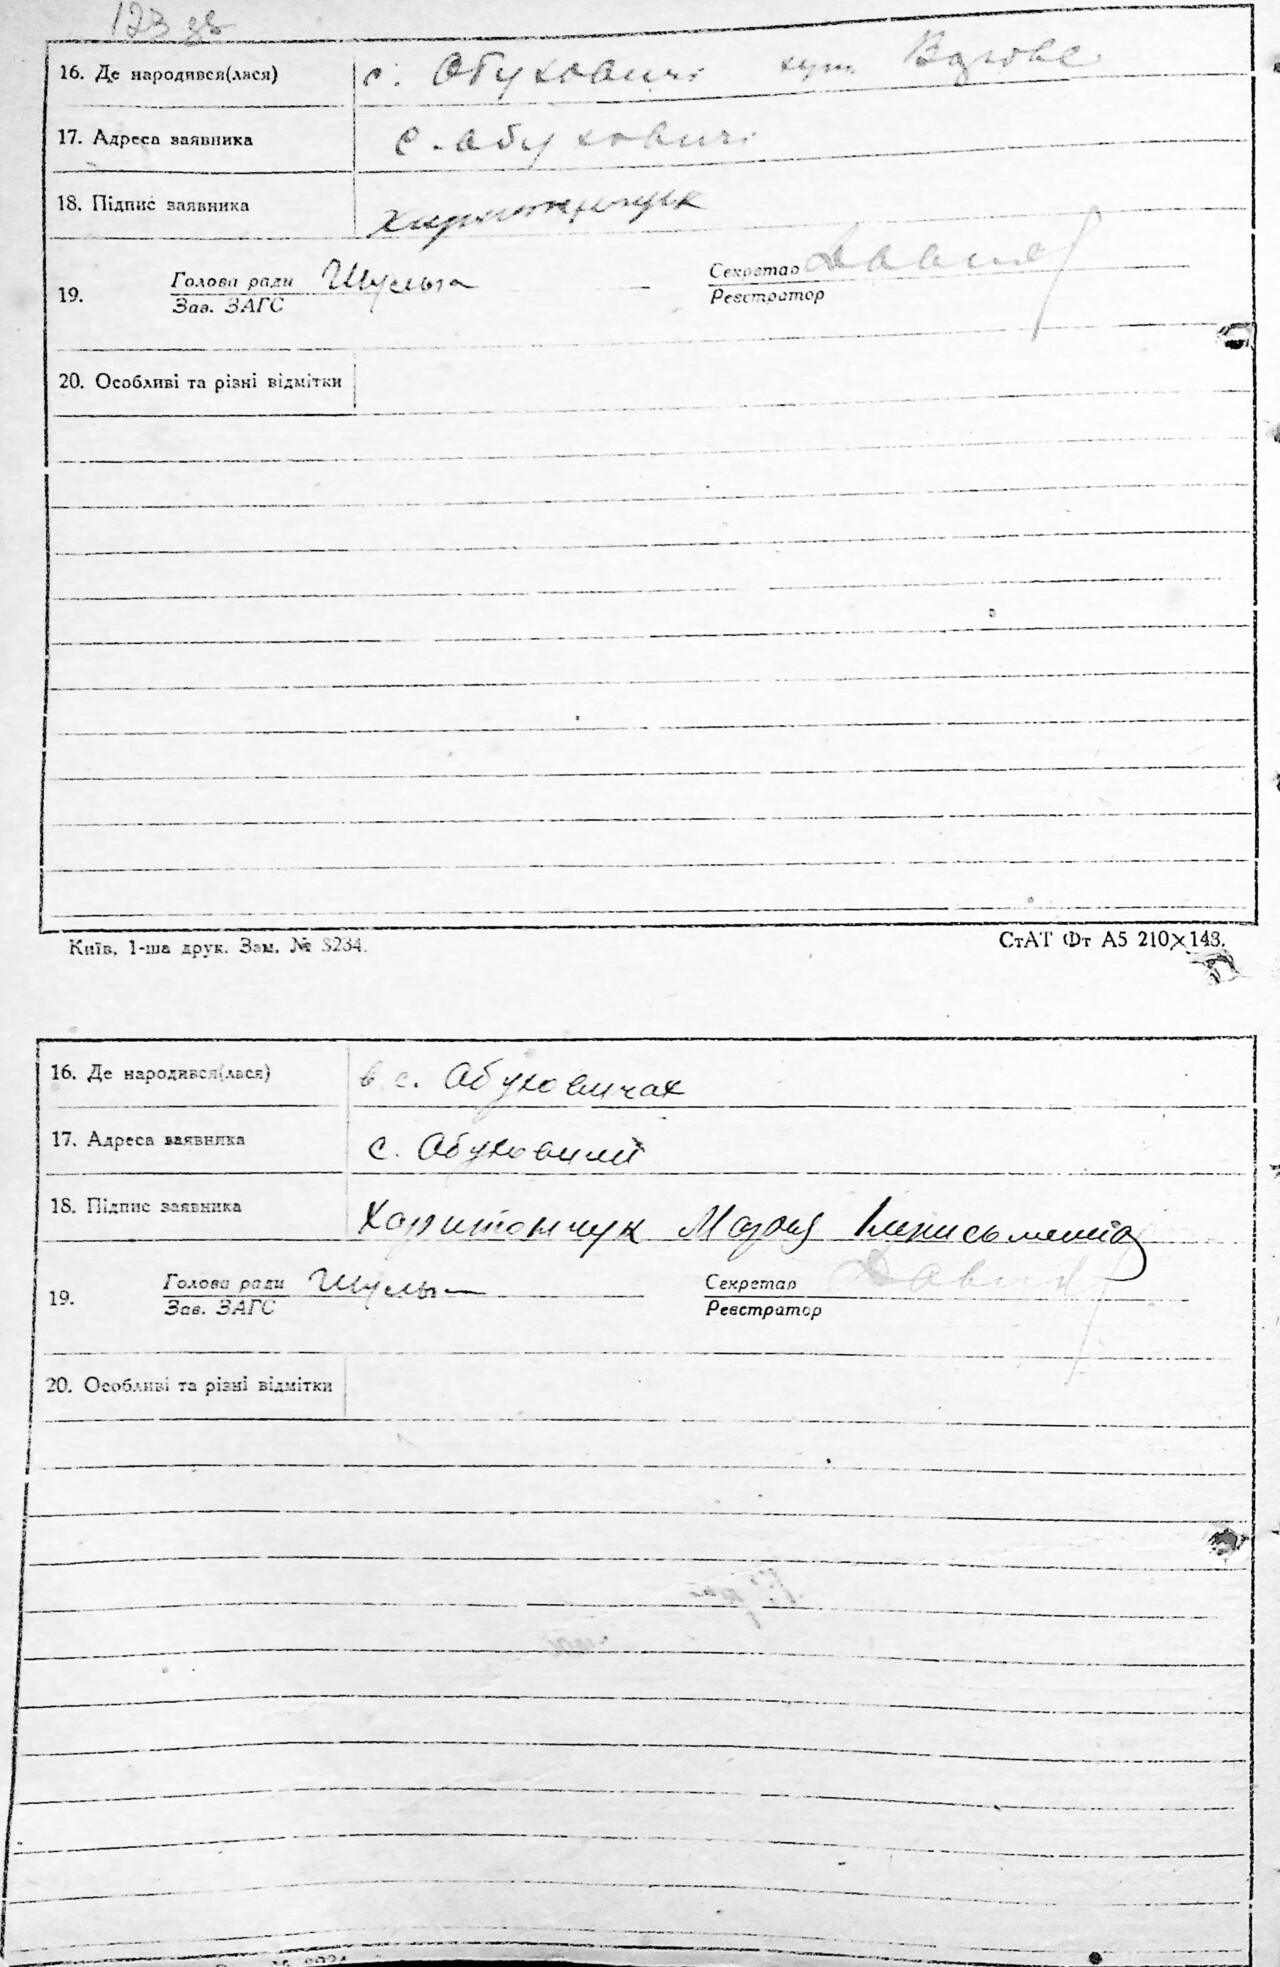 123 зв
16. Де народився(лася) с. Обуховичі хут. Вдгове
17. Адреса заявника с. Обуховичі
18. Підпис заявника Харитончук
19. Голова ради Шульга Секретар
Зав. ЗАГС Реєстратор
20. Особливі та різні відмітки
Київ, 1-ша друк. Зам. № 3234.
СтАТ Фт А5 210×143.
16. Де народився(лася) в с. Обуховичах
17. Адреса заявника с. Обуховичі
18. Підпис заявника Харитончук Мария
19. Голова ради Шульга Секретар
Зав. ЗАГС Реєстратор
20. Особливі та різні відмітки